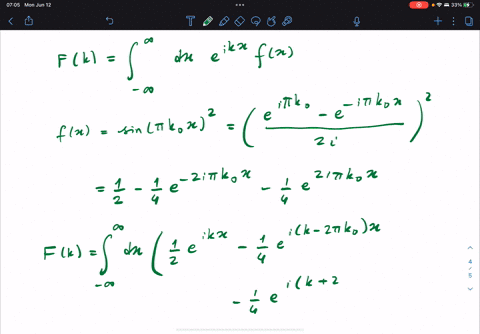 07:05 Mon Jun 12
33%
F(k) = ∫_{-∞}^{∞} dx e^{ikx} f(x)
f(x) = sin(πk₀x)² = ( (e^{iπk₀} - e^{-iπk₀x}) / 2i )²
= 1/2 - 1/4 e^{-2iπk₀x} - 1/4 e^{2iπk₀x}
F(k) = ∫_{-∞}^{∞} dx ( 1/2 e^{ikx} - 1/4 e^{i(k-2πk₀)x}
- 1/4 e^{i(k+2
4
/
5